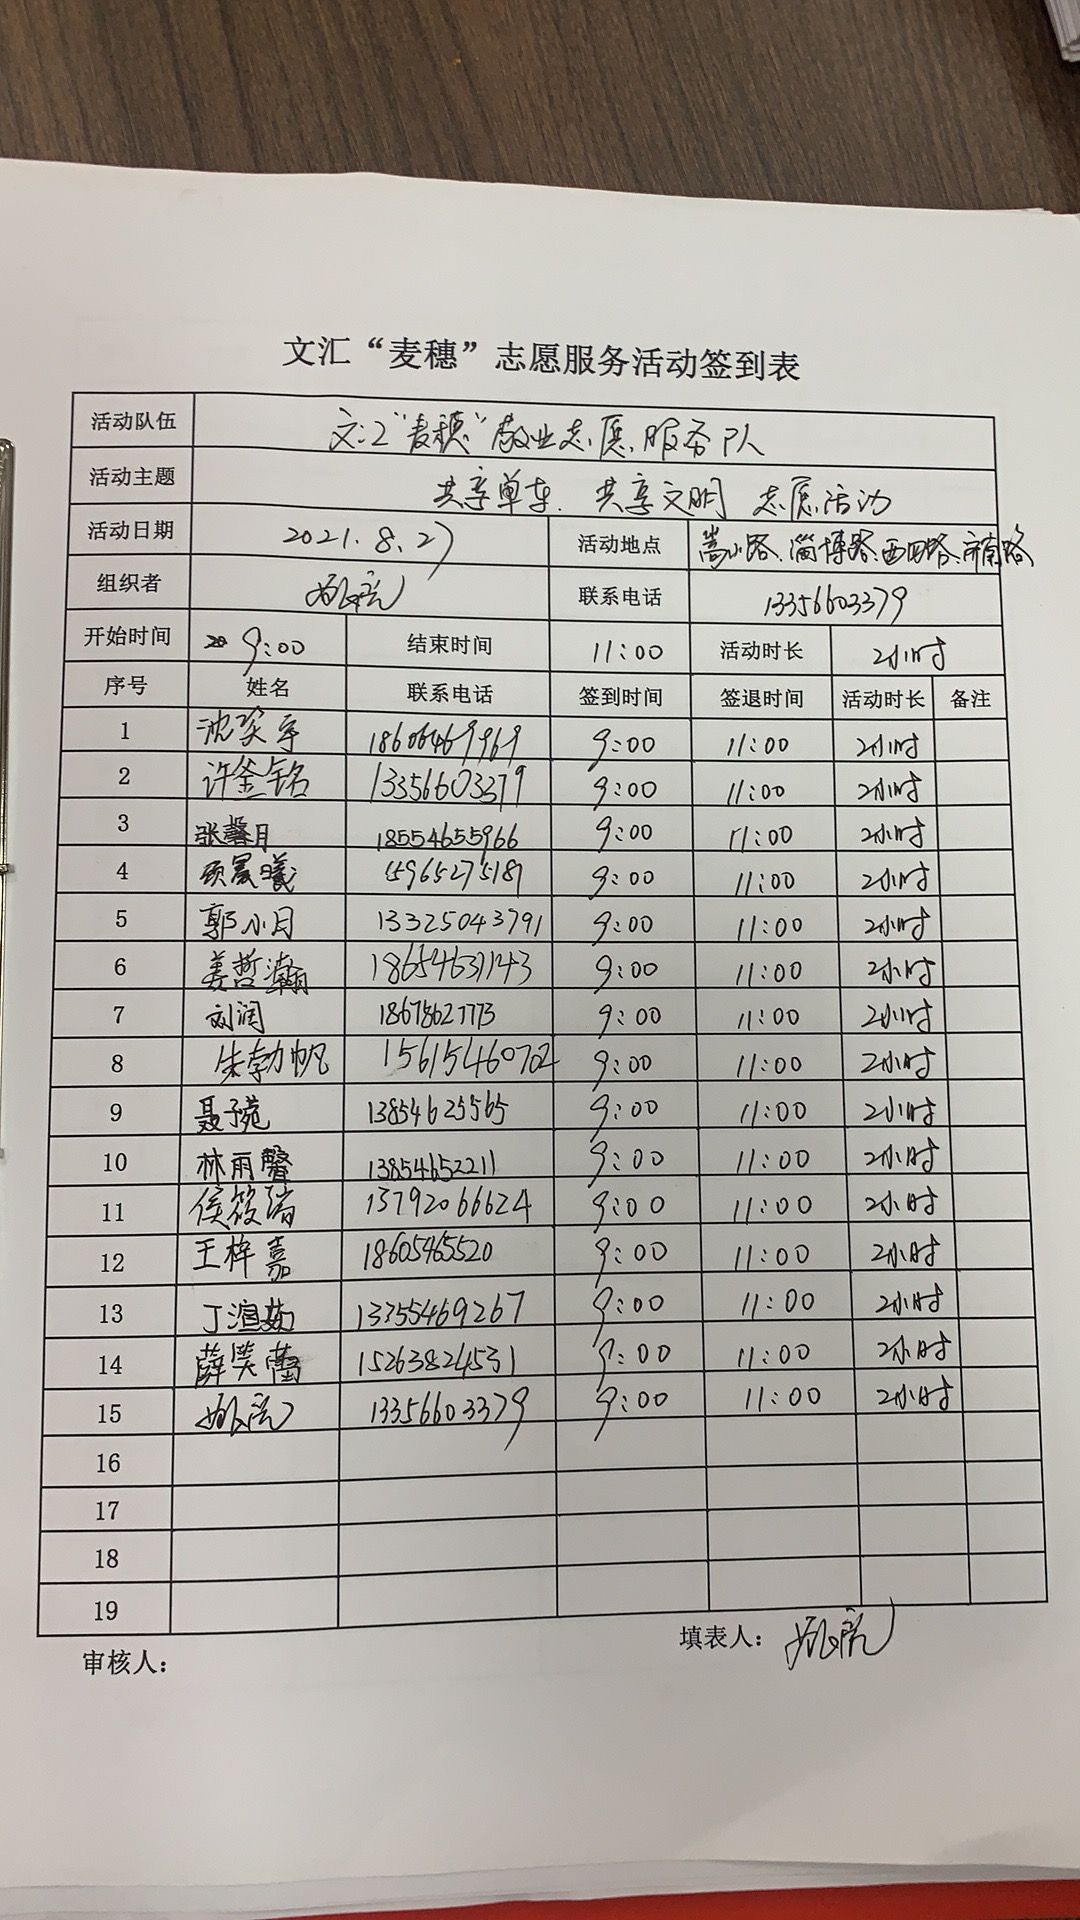 文汇“麦穗”志愿服务活动签到表
活动队伍 文汇“麦穗”敬业志愿服务队
活动主题 共享单车、共享文明 志愿活动
活动日期 2021.8.27 活动地点 嵩山路、淄博路、西四路、济南路
组织者 联系电话 13356603379
开始时间 9:00 结束时间 11:00 活动时长 2小时
序号 姓名 联系电话 签到时间 签退时间 活动时长 备注
1 沈奕宇 18606469969 9:00 11:00 2小时
2 许釜铭 13356603379 9:00 11:00 2小时
3 张馨月 18554655966 9:00 11:00 2小时
4 顾晨曦 15965275187 9:00 11:00 2小时
5 郭小月 13325043791 9:00 11:00 2小时
6 姜哲瀚 18654631143 9:00 11:00 2小时
7 刘润 18678627773 9:00 11:00 2小时
8 朱勃帆 15615460702 9:00 11:00 2小时
9 聂子苑 13854625565 9:00 11:00 2小时
10 林雨馨 13854652211 9:00 11:00 2小时
11 侯筱瑞 13792066624 9:00 11:00 2小时
12 王梓嘉 18605465520 9:00 11:00 2小时
13 丁渲茹 13355469267 9:00 11:00 2小时
14 薛笑 15263824531 9:00 11:00 2小时
15 13356603379 9:00 11:00 2小时
16
17
18
19
审核人： 填表人：